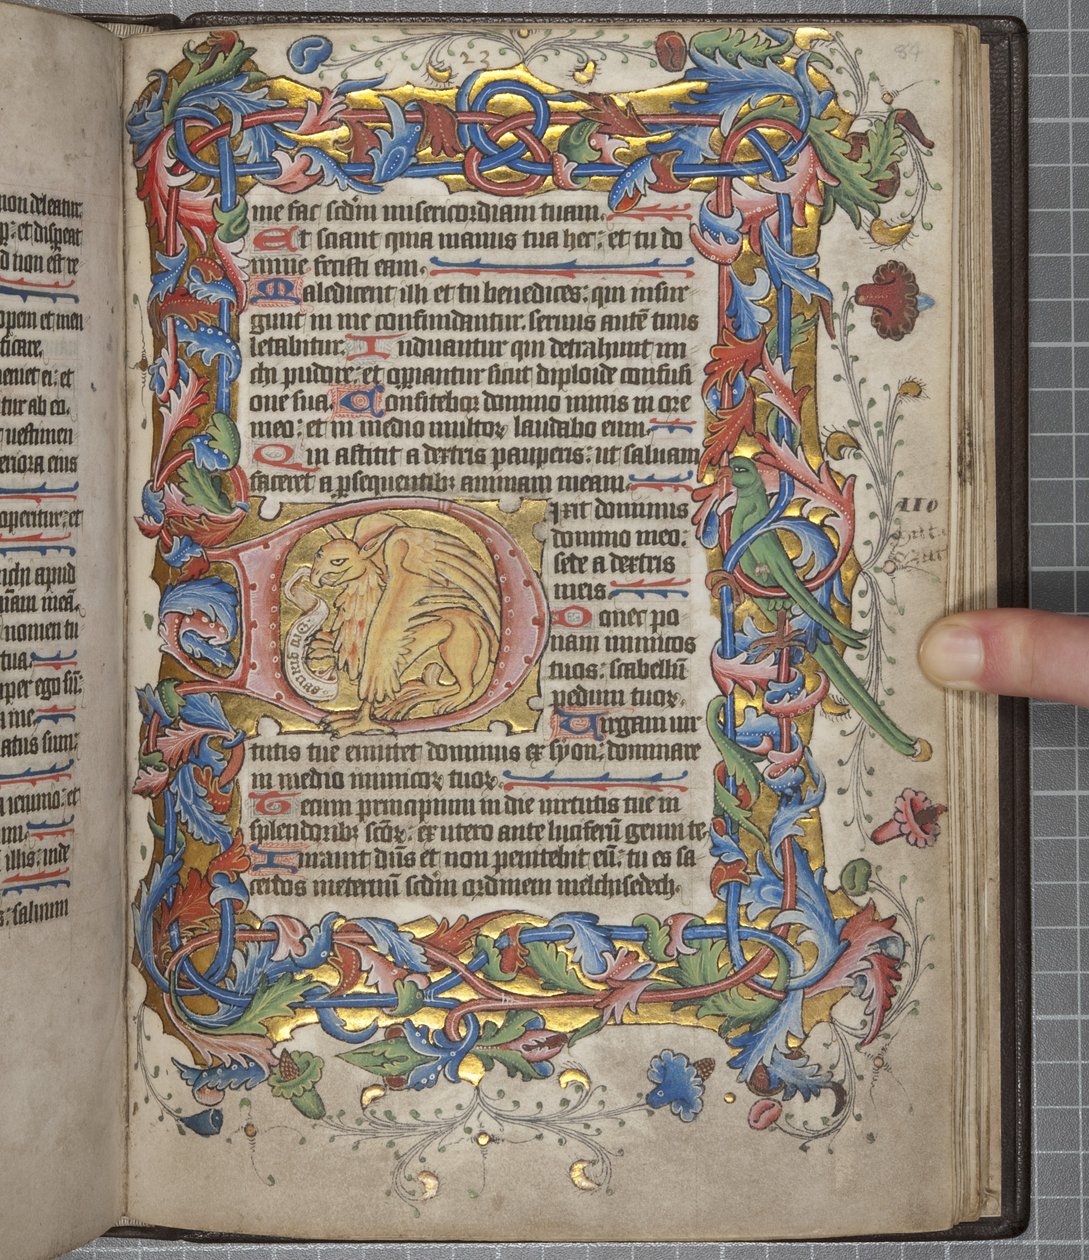 non deleatur
et dispeat
d non est re
ficare.
et
tur ab eo.
uestimen
eriora eius
operietur et
apud
nomen tu
tua
per ego su
me
atus sum
et
illis inde
23
84
me fac scdm misericordiam tuam.
Et sciant quia manus tua hec: et tu do
mine fecisti eam.
Maledicent illi et tu benedices: qui insur
gunt in me confundantur. seruus autē tuus
letabitur. Induantur qui detrahunt mi
chi pudore: et operiantur sicut diploide confusi
one sua. Confitebor domino nimis in ore
meo: et in medio multoꝝ laudabo eum.
Qui astitit a dextris pauperis: ut saluam
faceret a ꝑsequentibꝫ animam meam.
Dixit dominus
domino meo:
sede a dextris
meis.
Donec po
nam inimicos
tuos: scabellū
pedum tuoꝝ.
Uirgam uir
tutis tue emittet dominus ex syon: dominare
in medio inimicoꝝ tuoꝝ.
Tecum principium in die uirtutis tue in
splendoribꝫ scōꝝ: ex utero ante luciferū genui te.
Iurauit dn̄s et non penitebit eū: tu es sa
cerdos in eternū scdm ordinem melchisedech.
110